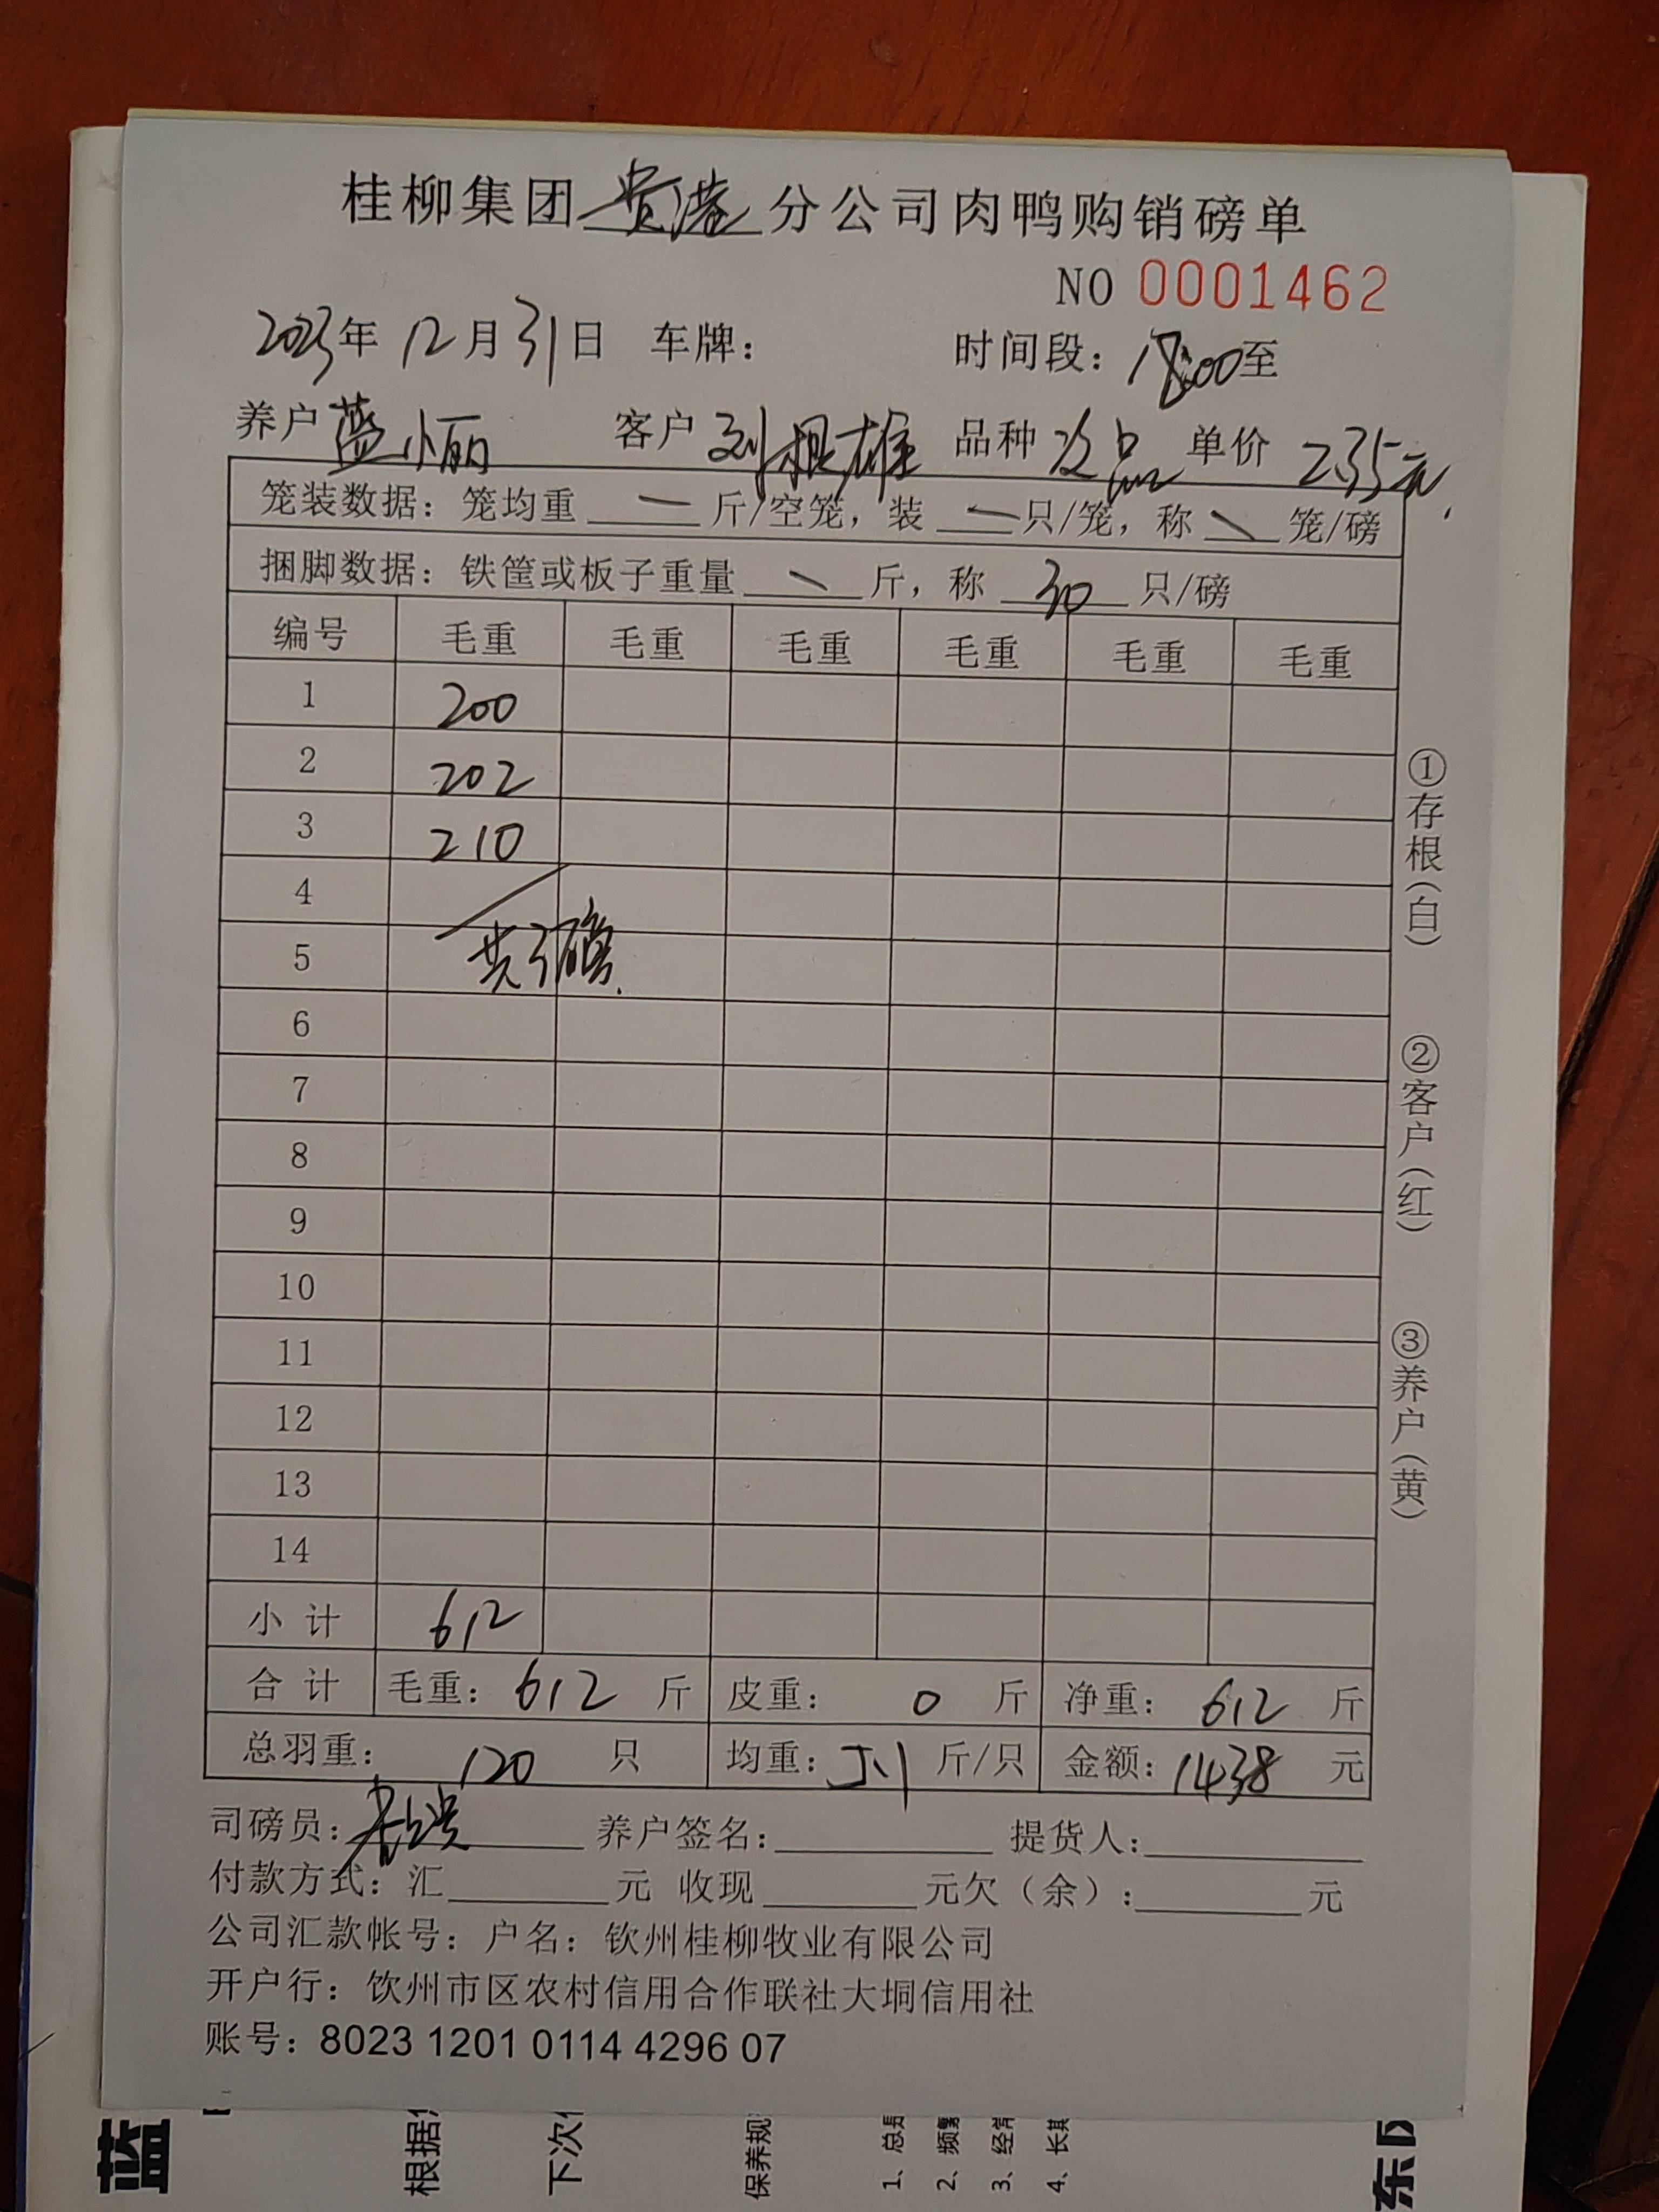 桂柳集团贵港分公司肉鸭购销磅单
NO 0001462
2023年12月31日 车牌： 时间段：18:00至
养户 蓝小丽 客户 刘根雄 品种 次品 单价 2.35元
笼装数据：笼均重 — 斤/空笼，装 — 只/笼，称 \ 笼/磅
捆脚数据：铁筐或板子重量 \ 斤，称 30 只/磅
编号 毛重 毛重 毛重 毛重 毛重 毛重
1 200
2 202
3 210
4
5 共3磅.
6
7
8
9
10
11
12
13
14
小计 612
合计 毛重：612斤 皮重：0斤 净重：612斤
总羽重：120只 均重：5.1斤/只 金额：1438元
①存根（白） ②客户（红） ③养户（黄）
司磅员： 养户签名： 提货人：
付款方式：汇 元 收现 元欠（余）： 元
公司汇款帐号：户名：钦州桂柳牧业有限公司
开户行：饮州市区农村信用合作联社大垌信用社
账号：8023 1201 0114 4296 07
蓝
根据
下次
保养规
1、总
2、频
3、经常
4、长其
东